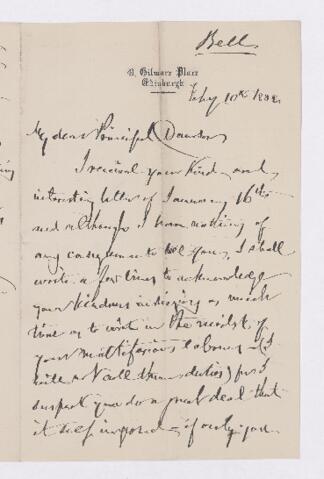 Bell
9, Gilmore Place
Edinburgh
Feby 10th 1882
My dear Principal Dawson
I received your kind and
interesting letter of January 16th
and although I have nothing of
any consequence to tell you, I shall
write a few lines to acknowledge
your kindness in sparing so much
time as to write in the midst of
your multifarious labours (I
will not call them duties) for I
suspect you do a great deal that
is self imposed - if only you